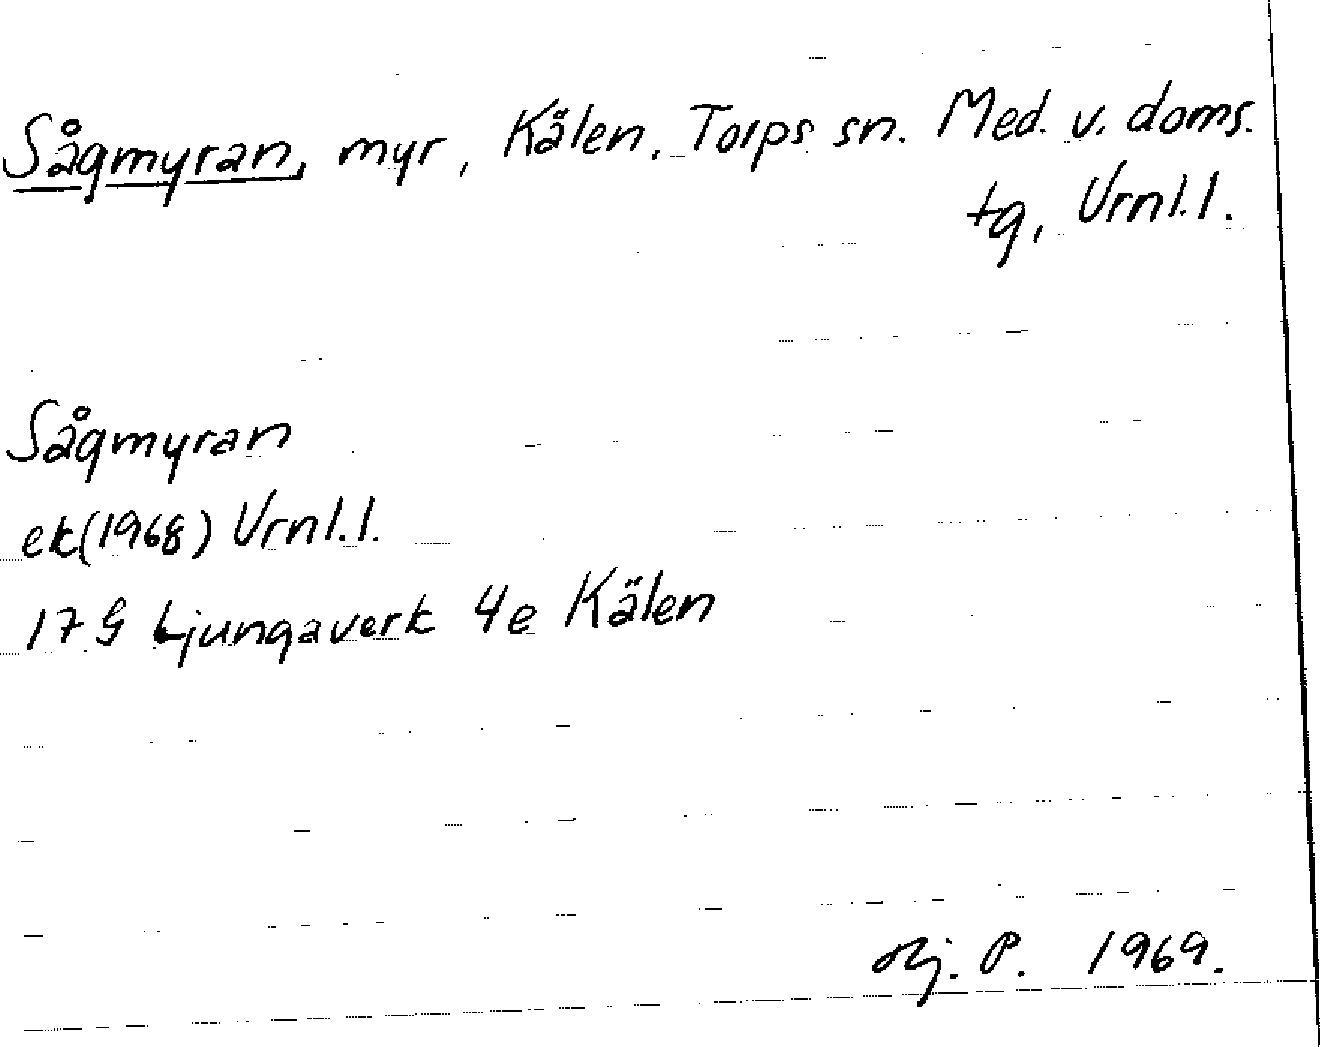 Sågmyran, myr, Kälen, Torps sn. Med. v. doms.
tg, Vrnl.l.
Sågmyran
ek(1968) Vrnl.l.
17 G Ljungaverk 4e Kälen
P. 1969.